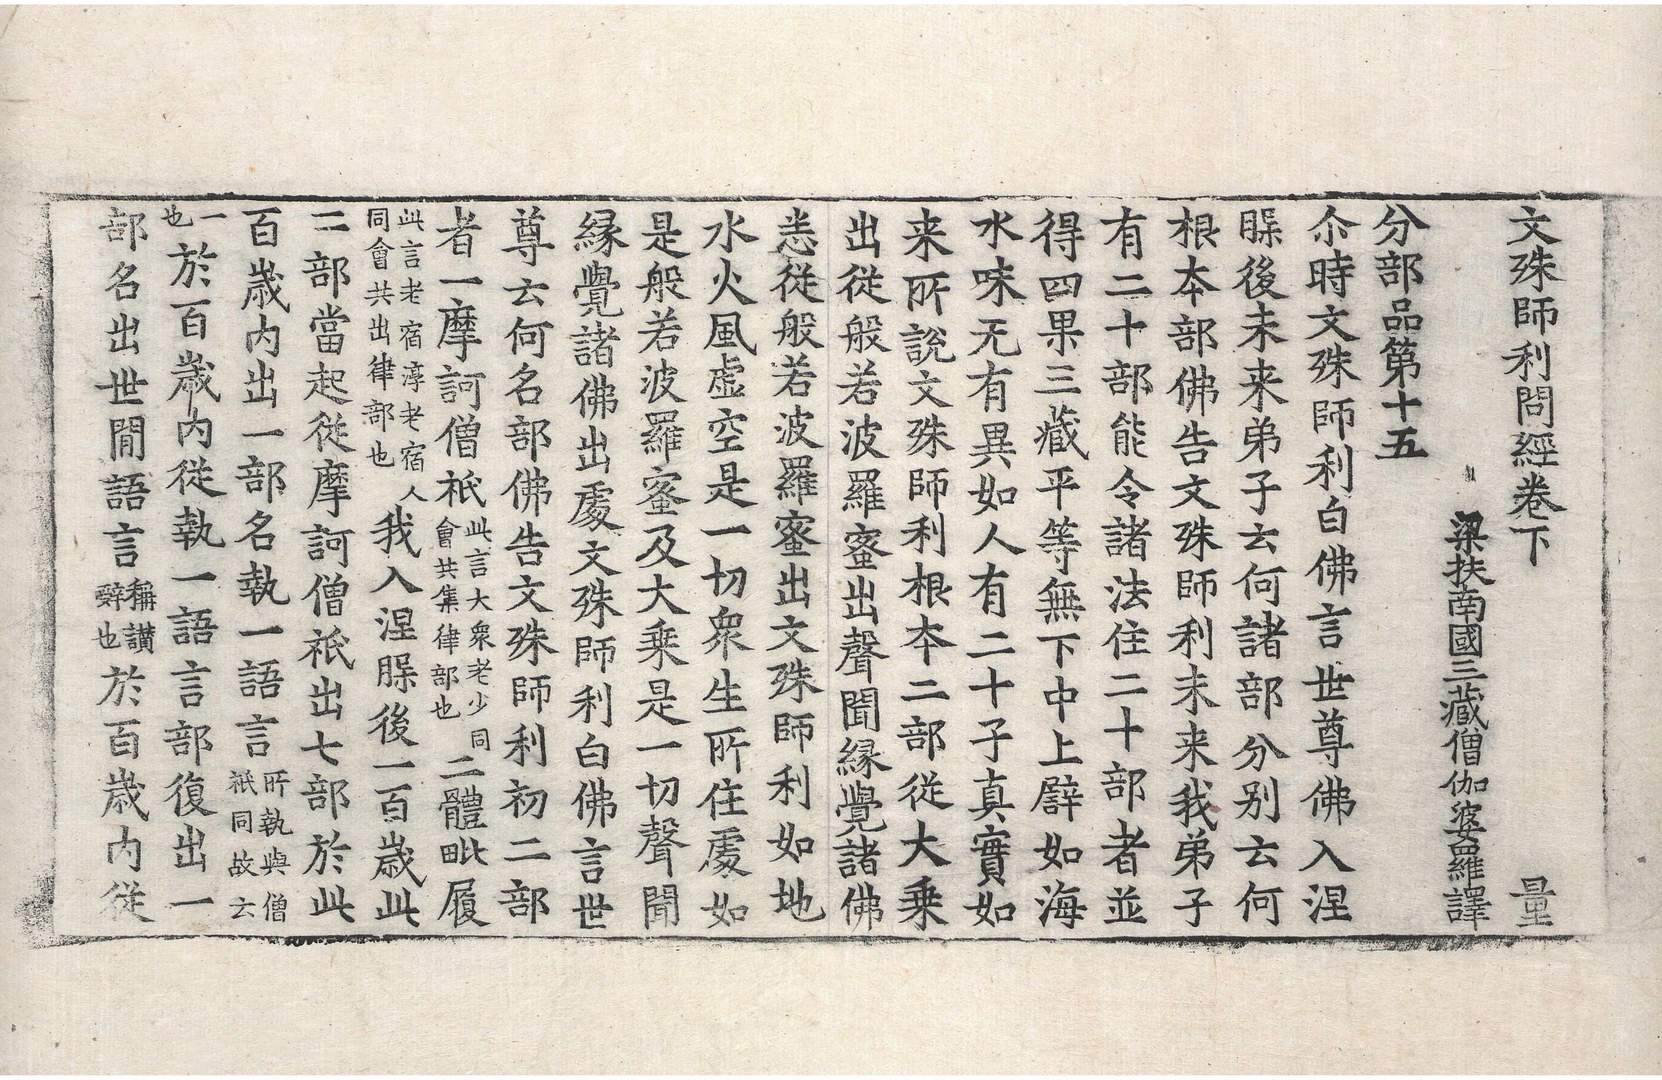 文殊師利問經卷下 量
梁扶南國三藏僧伽婆羅譯
分部品第十五
尒時文殊師利白佛言世尊佛入涅
槃後未来弟子云何諸部分别云何
根本部佛告文殊師利未来我弟子
有二十部能令諸法住二十部者並
得四果三藏平等無下中上譬如海
水味无有異如人有二十子真實如
来所說文殊師利根本二部從大乗
出從般若波羅蜜出聲聞縁覺諸佛
悉從般若波羅蜜出文殊師利如地
水火風虚空是一切衆生所住處如
是般若波羅蜜及大乗是一切聲聞
縁覺諸佛出處文殊師利白佛言世
尊云何名部佛告文殊師利初二部
者一摩訶僧祇此言大衆老少同會共集律部也二體毗履
此言老宿淳老宿人同會共出律部也我入涅槃後一百歳此
二部當起從摩訶僧祇出七部於此
百歳内出一部名執一語言所執與僧祇同故云
一也於百歳内從執一語言部復出一
部名出世間語言稱讃辭也於百歳内從